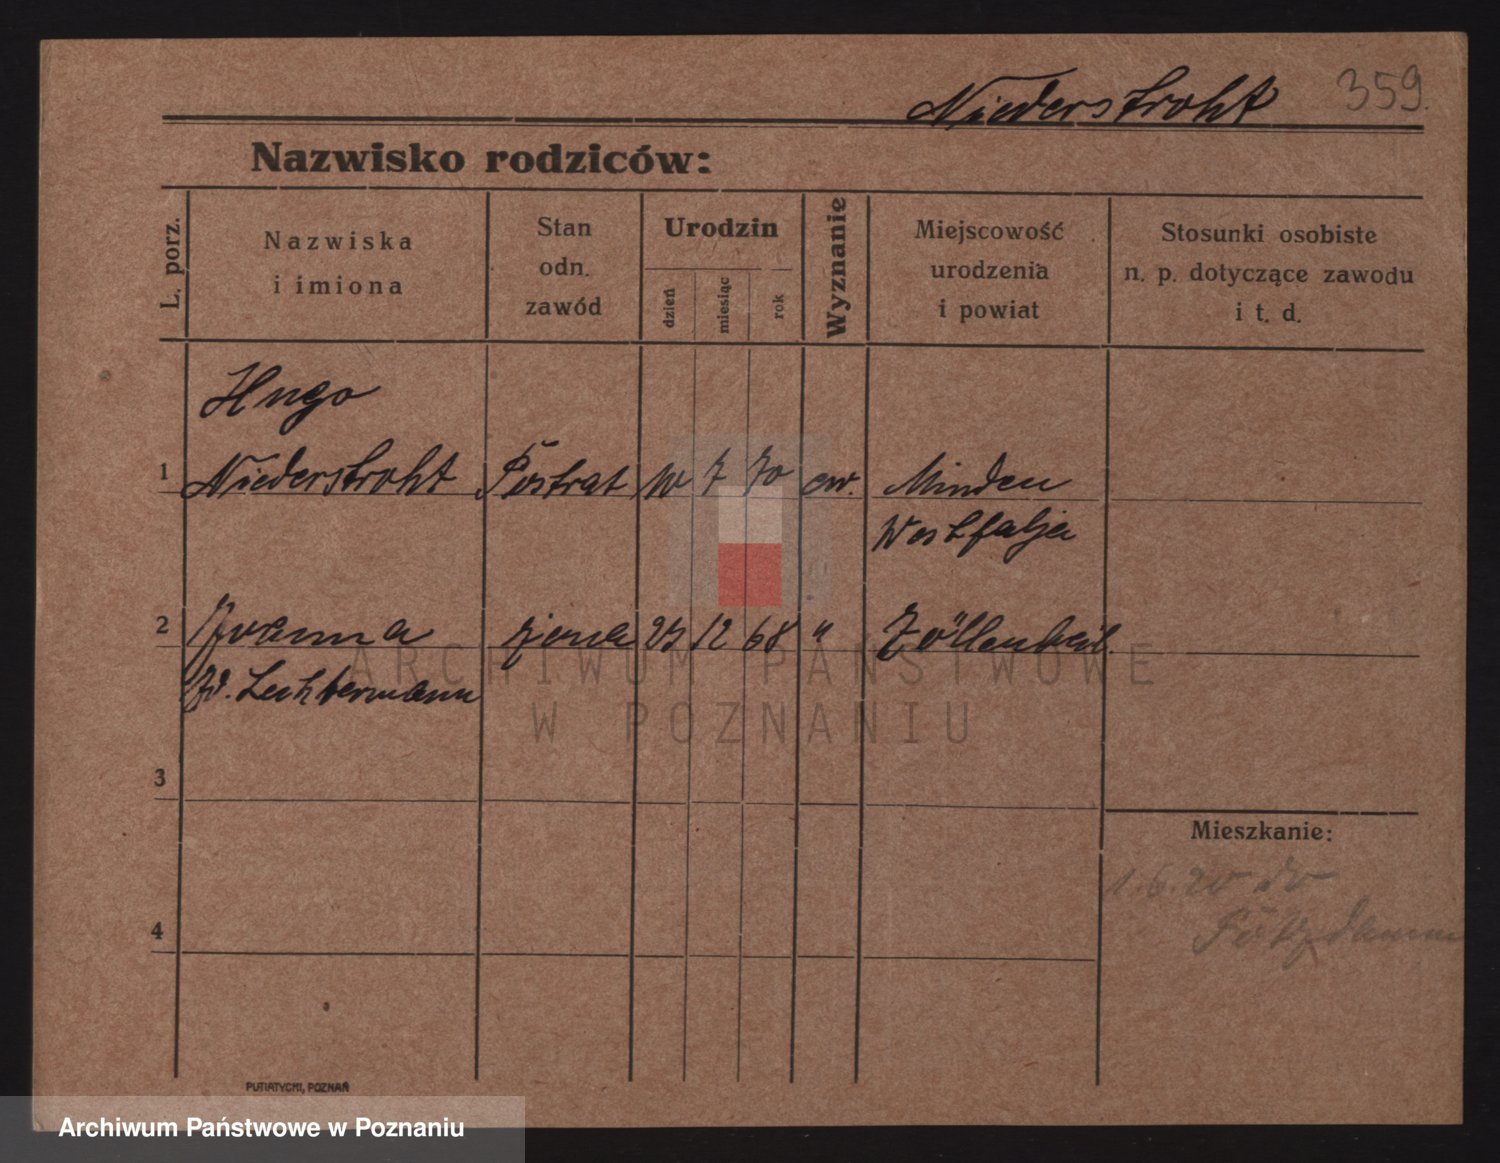 Niederstroht 359.
Nazwisko rodziców:
L. porz.
Nazwiska
i imiona
Stan
odn.
zawód
Urodzin
dzień
miesiąc
rok
Wyznanie
Miejscowość
urodzenia
i powiat
Stosunki osobiste
n. p. dotyczące zawodu
i t. d.
Hugo
1 Niederstroht Postrat 10 7 70 ew. Minden
Westfalja
2 Joanna żona 27 12 68 "
Lechtermann
3
Mieszkanie:
1.6.20 do
4
PUTIATYCKI, POZNAŃ
ARCHIWUM PAŃSTWOWE
W POZNANIU
Archiwum Państwowe w Poznaniu